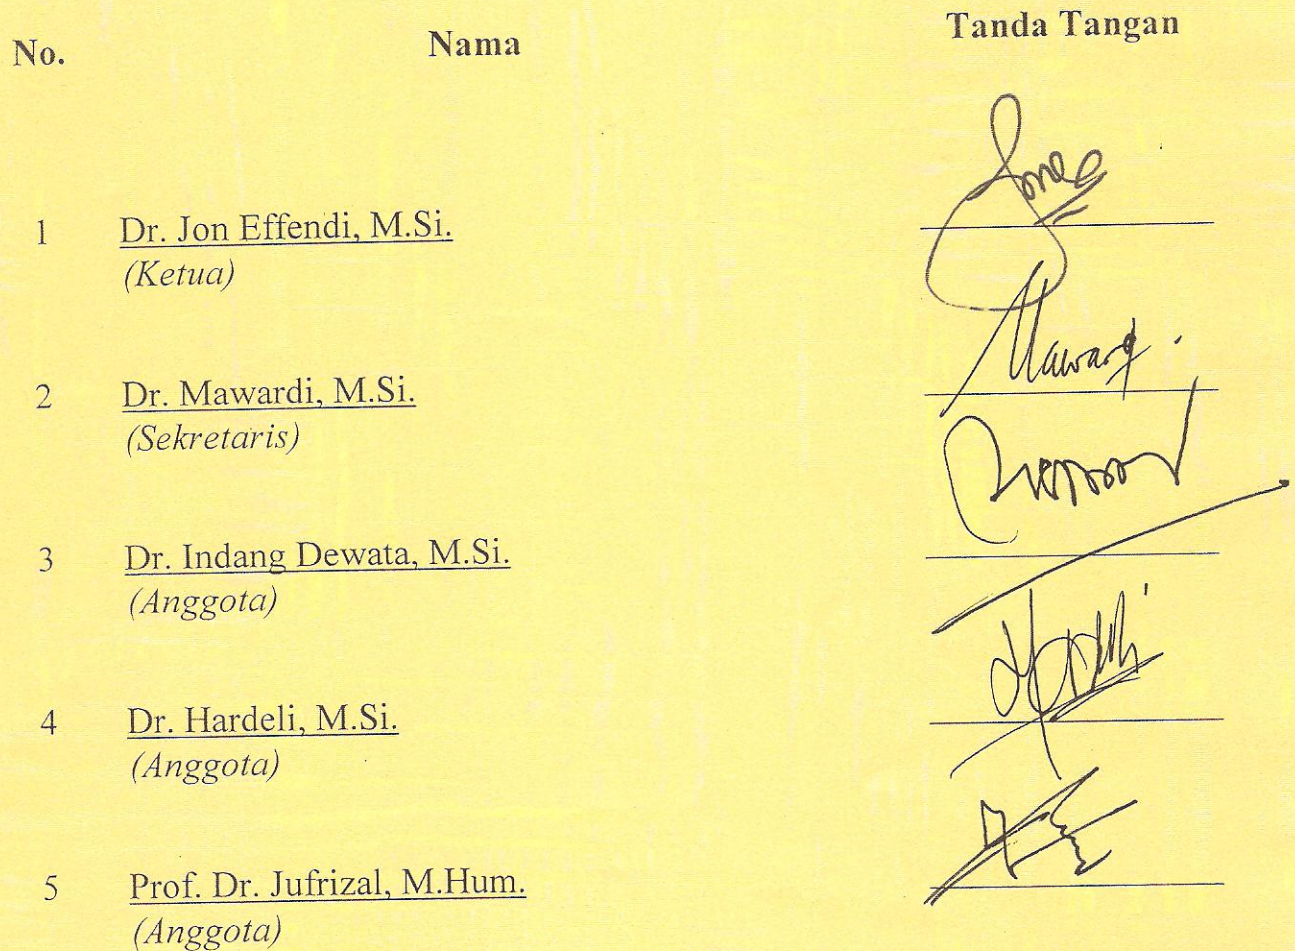 No. Nama Tanda Tangan
1 Dr. Jon Effendi, M.Si.
(Ketua)
2 Dr. Mawardi, M.Si. Mawardi
(Sekretaris)
3 Dr. Indang Dewata, M.Si.
(Anggota)
4 Dr. Hardeli, M.Si.
(Anggota)
5 Prof. Dr. Jufrizal, M.Hum.
(Anggota)